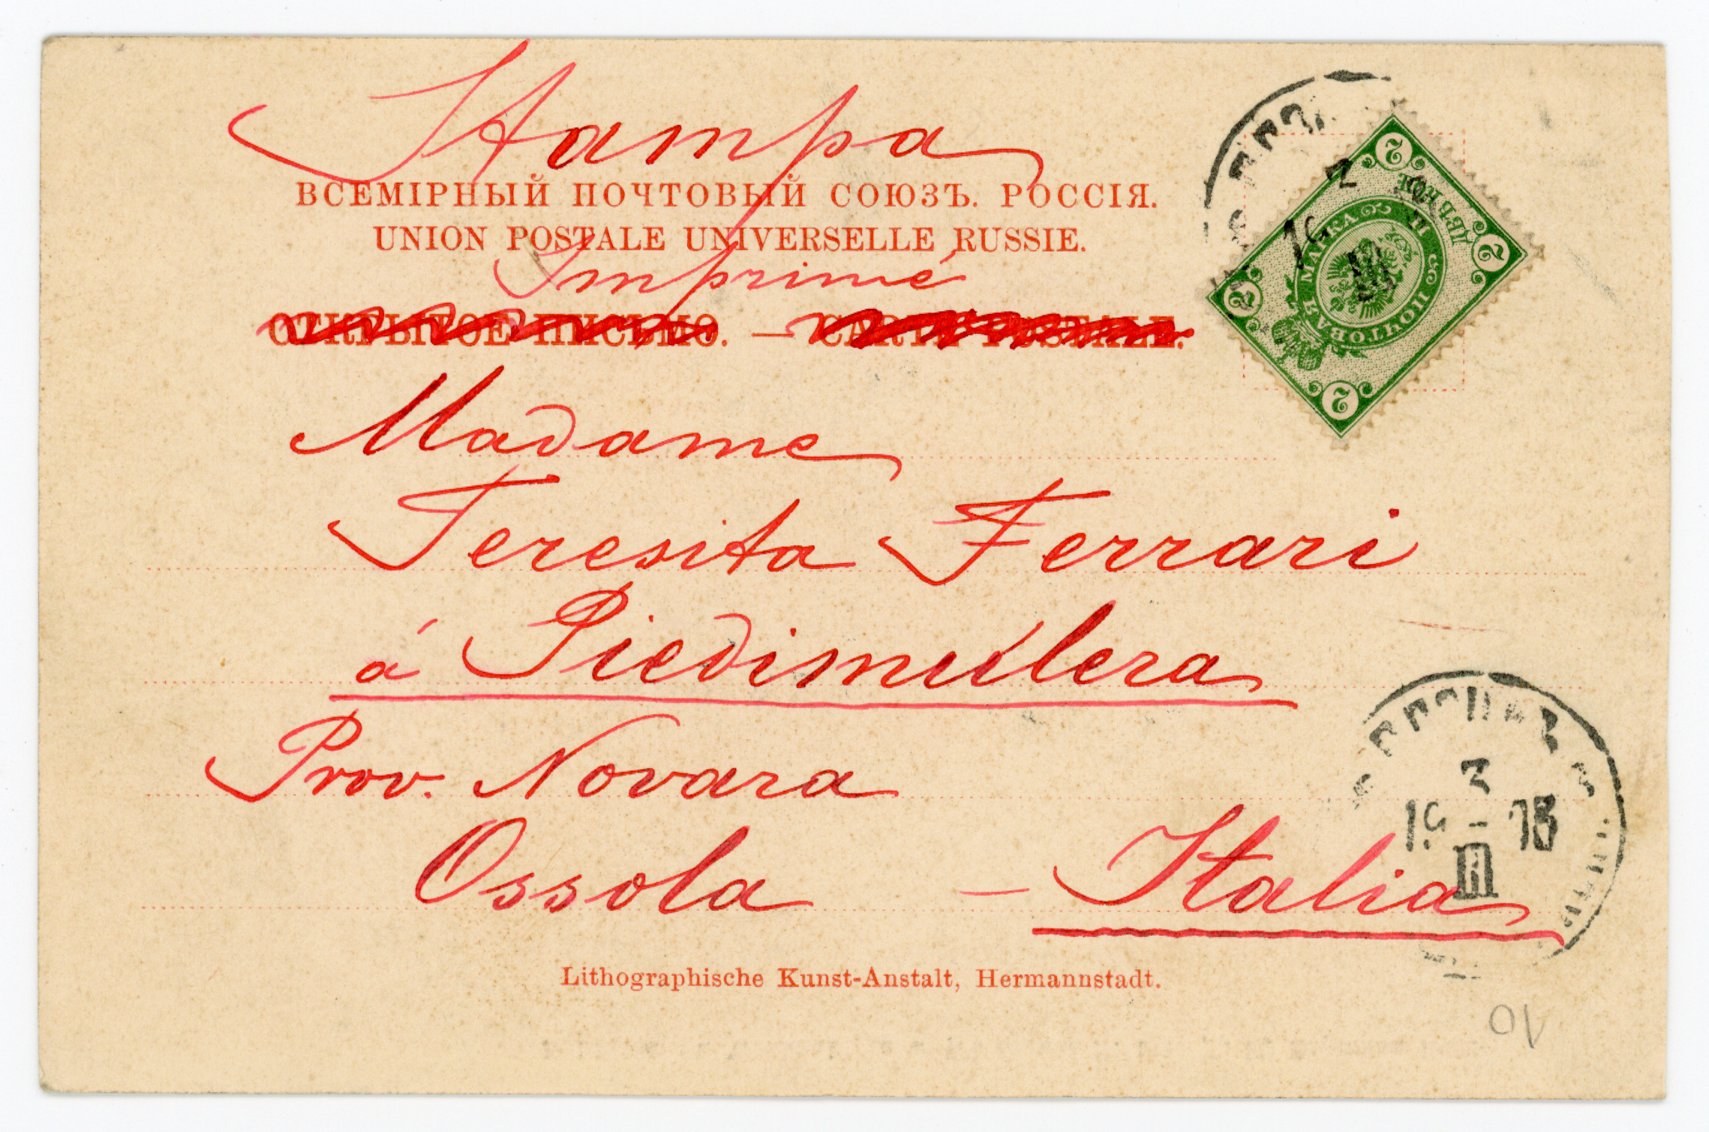 Stampa
ВСЕМІРНЫЙ ПОЧТОВЫЙ СОЮЗЪ. РОССІЯ.
UNION POSTALE UNIVERSELLE RUSSIE.
Imprimé
ОТКРЫТОЕ ПИСЬМО. — CARTE POSTALE.
Madame
Teresita Ferrari
á Piedimulera
Prov. Novara
Ossola — Italia
Lithographische Kunst-Anstalt, Hermannstadt.
2 2 2 2
ПОЧТОВАЯ МАРКА
ДВѢ КОП
3
III
10